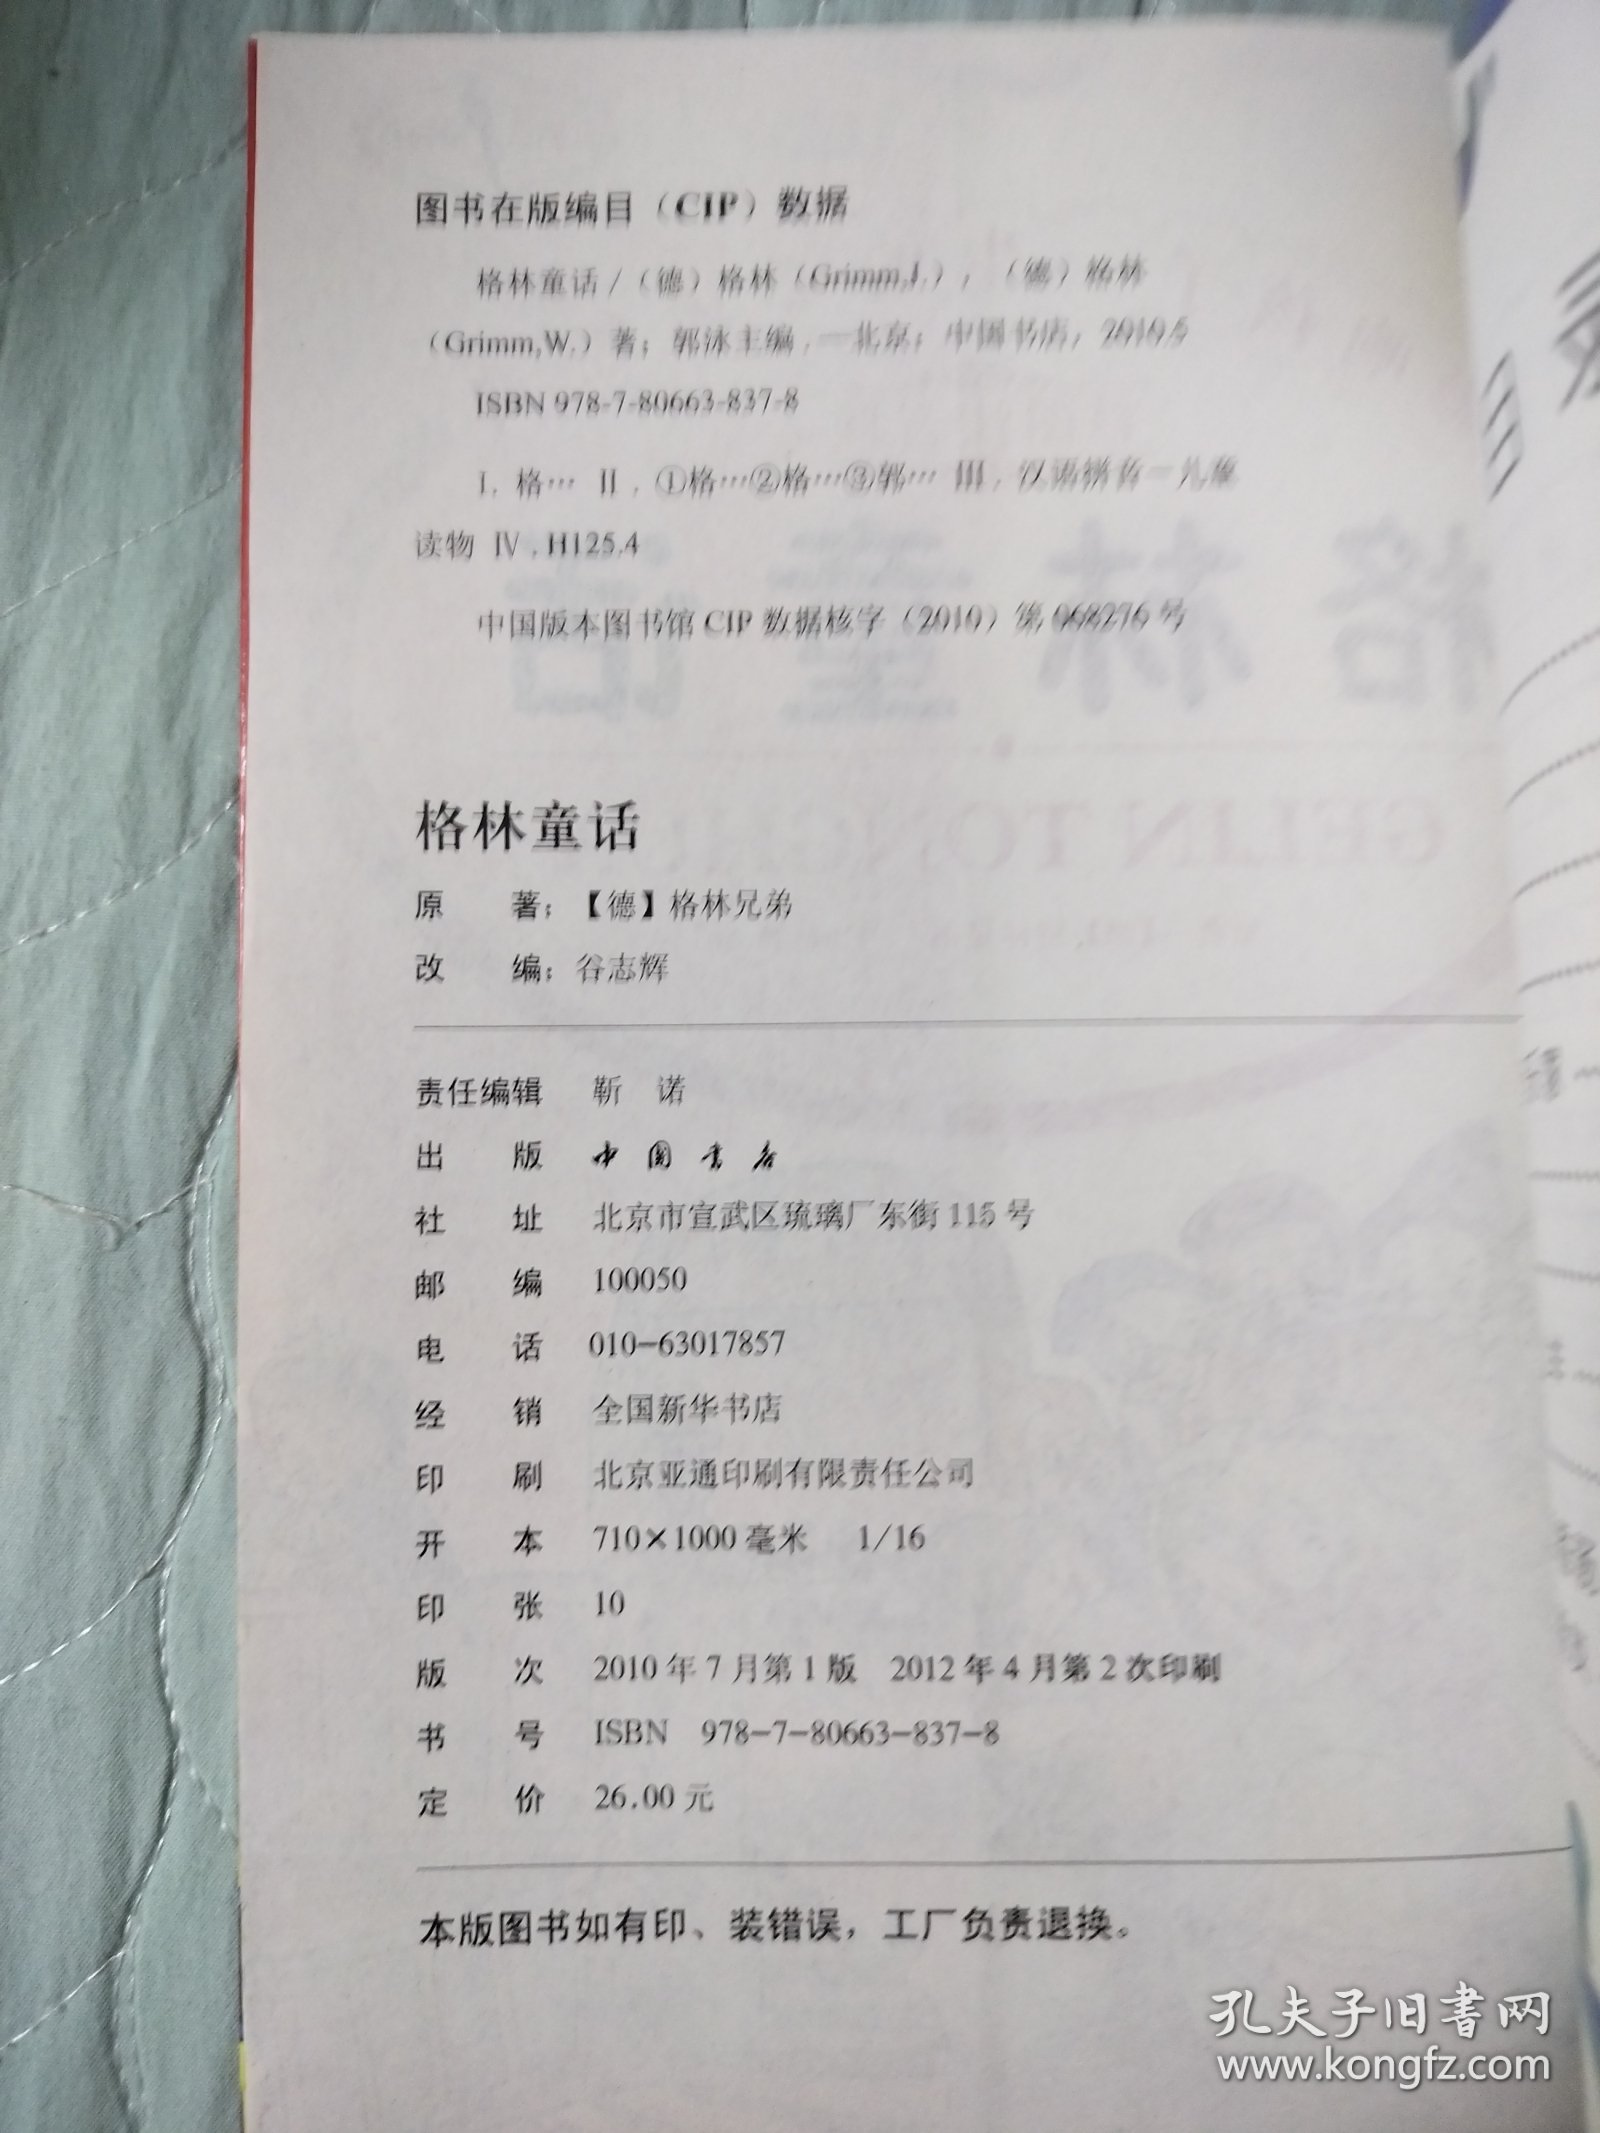 图书在版编目（CIP）数据
格林童话/（德）格林（Grimm,J.），（德）格林
（Grimm,W.）著；郭泳主编.—北京：中国书店，2010.5
ISBN 978-7-80663-837-8
I. 格… II . ①格…②格…③郭… III . 汉语拼音－儿童
读物 IV . H125.4
中国版本图书馆 CIP 数据核字（2010）第 068276 号
格林童话
原 著：【德】格林兄弟
改 编：谷志辉
责任编辑 靳 诺
出 版 中国书店
社 址 北京市宣武区琉璃厂东街 115 号
邮 编 100050
电 话 010-63017857
经 销 全国新华书店
印 刷 北京亚通印刷有限责任公司
开 本 710×1000 毫米 1/16
印 张 10
版 次 2010 年 7 月第 1 版 2012 年 4 月第 2 次印刷
书 号 ISBN 978-7-80663-837-8
定 价 26.00 元
本版图书如有印、装错误，工厂负责退换。
孔夫子旧书网
www.kongfz.com